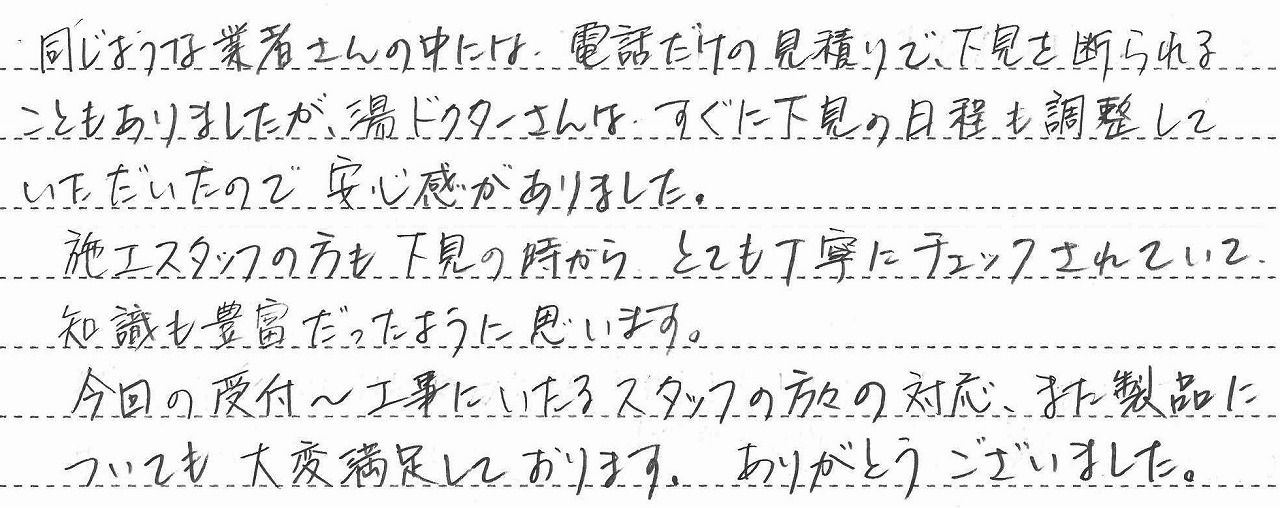 同じような業者さんの中には、電話だけの見積りで、下見を断られる
こともありましたが、湯ドクターさんは、すぐに下見の日程も調整して
いただいたので安心感がありました。
施工スタッフの方も下見の時から とても丁寧にチェックされていて、
知識も豊富だったように思います。
今回の受付～工事にいたるスタッフの方々の対応、また製品に
ついても大変満足しております。 ありがとうございました。